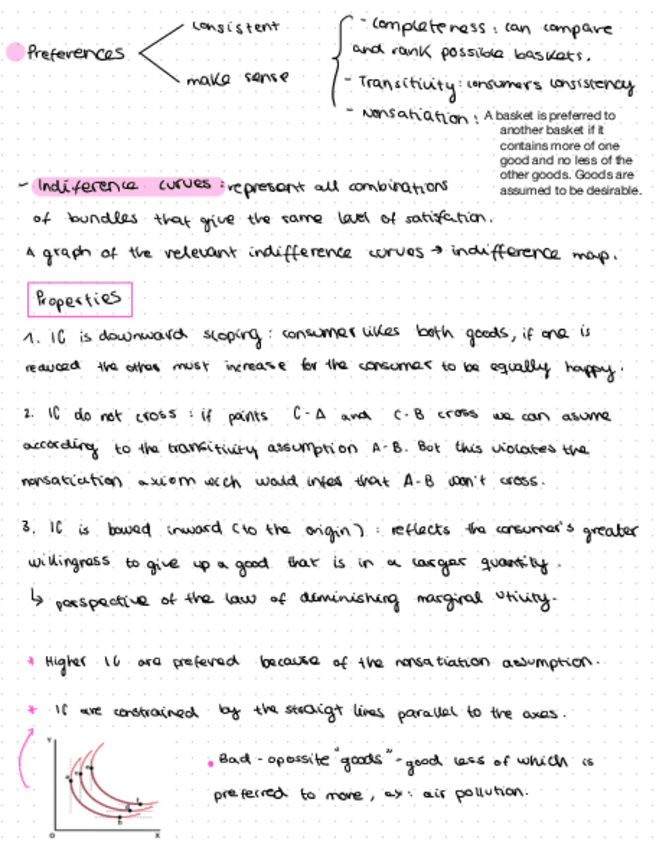 Preferences
consistent
make sense
- completeness : can compare
and rank possible baskets.
- Transitivity : consumers consistency
- Nonsatiation : A basket is preferred to
another basket if it
contains more of one
good and no less of the
other goods. Goods are
assumed to be desirable.
- Indiference curves : represent all combinations
of bundles that give the same level of satisfation.
A graph of the relevant indifference curves → indifference map.
Properties
1. IC is downward sloping : consumer likes both goods, if one is
reduced the other must increase for the consumer to be equally happy.
2. IC do not cross : if points C-A and C-B cross we can asume
according to the transitivity assumption A-B. But this violates the
nonsatiation axiom wich would infer that A-B don't cross.
3. IC is bowed inward (to the origin) : reflects the consumer's greater
willingness to give up a good that is in a larger quantity.
↳ perspective of the law of deminishing marginal utility.
* Higher IC are prefered because of the nonsatiation assumption.
* IC are constrained by the straigt lines parallel to the axes.
• Bad - opossite "goods" - good less of which is
preferred to more, ex: air pollution.
Y
0
X